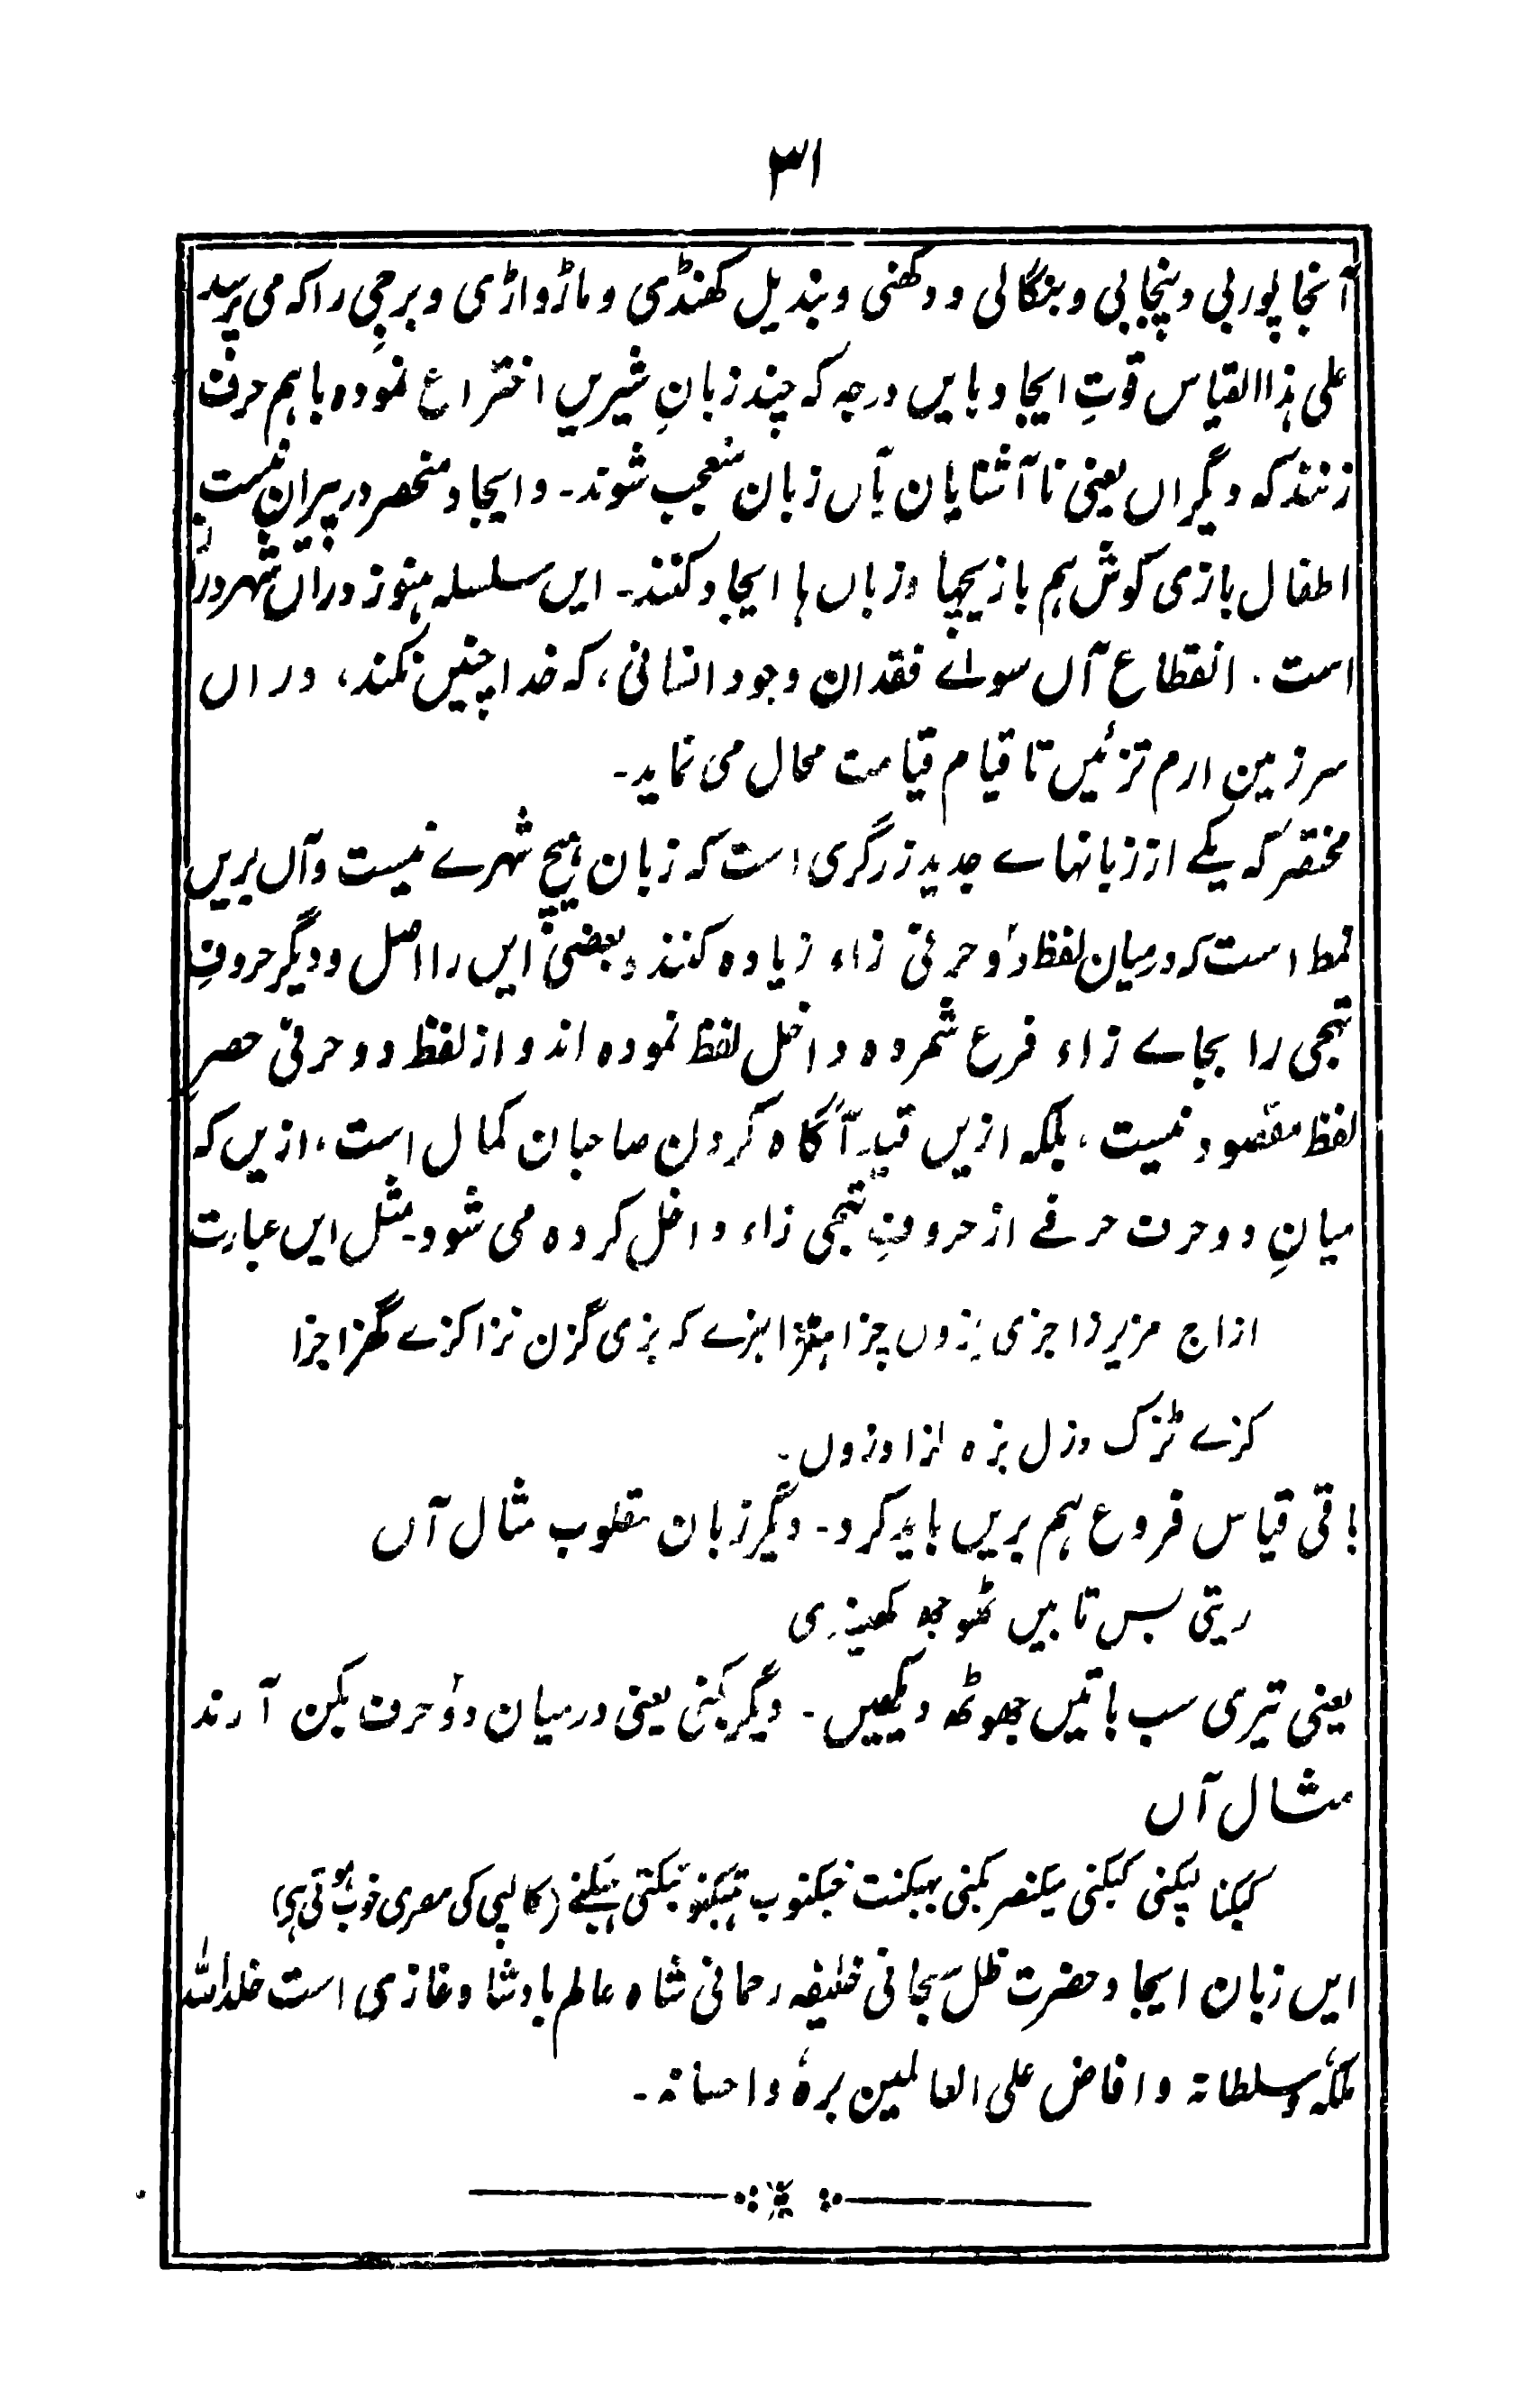 ۳۱
آنجا پوربی و پنجابی و بنگالی و دکھنی و بندیل کھنڈی و ماڑواڑی و برجی را که می پرسد
علی ہذا القیاس قوتِ ایجاد بایں درجہ کہ چند زبانِ شیریں اختراع نمودہ باہم حرف
زنند کہ دیگراں یعنی ناآشنایان بآں زبان متعجب شوند۔ و ایجاد منحصر در پیران نیست
اطفال بازی کوش ہم بازیچہا و زباں ہا ایجاد کنند۔ ایں سلسلہ ہنوز دراں شہر در
است۔ انقطاع آں سوائے فقدان وجود انسانی، کہ خدا چنیں نکند، دراں
سرزمین ارم تزئیں تا قیام قیامت محال می نماید۔
مختصر کہ یکے از زبانہاے جدید زرگری است کہ زبان ہیچ شہرے نیست و آں بریں
نمط است کہ درمیان لفظ دو حرفی زاء زیادہ کنند و بعضی ایں را اصل و دیگر حروفِ
تہجی را بجاے زاء فرع شمردہ داخل لفظ نمودہ اند و از لفظ دو حرفی حصرِ
لفظ مقصود نیست، بلکہ ازیں قید آگاہ کردن صاحبان کمال است، ازیں کہ
میانِ دو حرف حرفے از حروفِ تہجی زاء داخل کردہ می شود۔ مثل ایں عبارت
ازاج مزیرزا جزی یزوں چزاہتزا ہزے کہ بزی گزن نزا کزے گھزا جزا
کزے ٹزک دزل بزہ لزا وزوں۔
باقی قیاس فروع ہم بریں باید کرد۔ دیگر زبان مقلوب مثال آں
ریتی بس تابیں ٹھوجھ کھیندی
یعنی تیری سب باتیں جھوٹھ دیکھیں۔ دیگر کنی یعنی درمیان دو حرف یکن آرند
مثال آں
کیکنا لیکنی کیکنی میکنصر یکنی بہیکنت خیکنوب ہیکنو یکنتی ہیکنے (کالپی کی مصری خوب ہوتی ہی)
ایں زبان ایجاد حضرت ظل سبحانی خلیفہ رحمانی شاہ عالم بادشاہ غازی است خلد اللہ
ملکہٗ و سلطانہ و افاض علی العالمین برہٗ و احسانہ۔